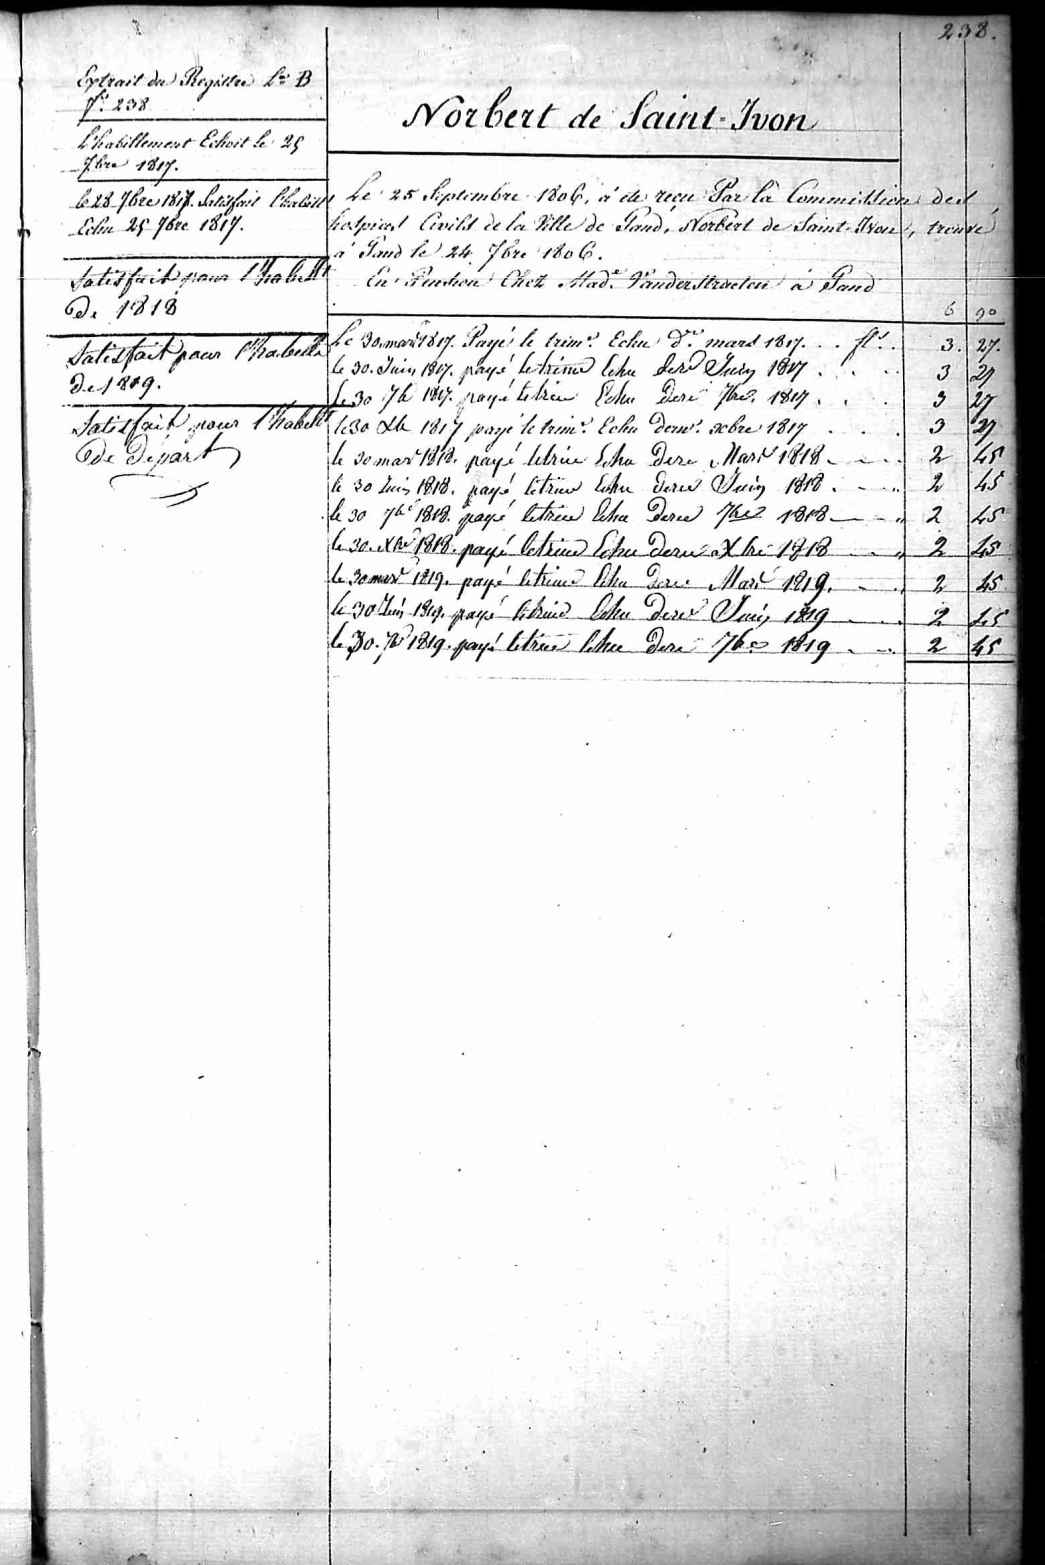 238.
Extrait du Registre Lre B
f° 238
L'habillement Echoit le 25
7bre 1817.
le 28 7bre 1817. Satisfait l'habillt
Echu 25 7bre 1817.
Satisfait pour l'habillt
de 1818
Satisfait pour l'habillt
de 1819.
Satisfait pour l'habillt
de Départ
Norbert de Saint-Ivon
Le 25 Septembre 1806, à été reçu Par la Commission des
hospices Civils de la Ville de Gand, Norbert de Saint-Ivon, trouvé
à Gand le 24 7bre 1806.
En Pension Chez Made Vanderstraeten à Gand
6 90
Le 30 mars 1817. Payé le trimre Echu dr mars 1817. . . fls. . 3. 27.
le 30. Juin 1817. payé le trime Echu dere Juin 1817 . . . 3 27
le 30 7b 1817. payé le trime Echu dere 7bre. 1817 . . . 3 27
le 30 Xb 1817 payé le trimre Echu dernr. xbre 1817 . . . 3 27
le 30 mars 1818. payé le trime Echu dere Mars 1818 - - - 2 45
le 30 Juin 1818. payé le trime Echu dere Juin 1818 . - - 2 45
le 30 7bre 1818. payé le trime Echu dere 7bre 1818 - - " 2 45
le 30. Xbre 1818. payé le trime Echu dere Xbre 1818 - - " 2 45
le 30 mars 1819. payé le trime Echu dere Mars 1819. - - " 2 45
le 30 Juin 1819. payé le trime Echu dere Juin 1819 - - 2 45
le 30. 7b 1819. payé le trime Echu dere 7bre 1819 - - 2 45